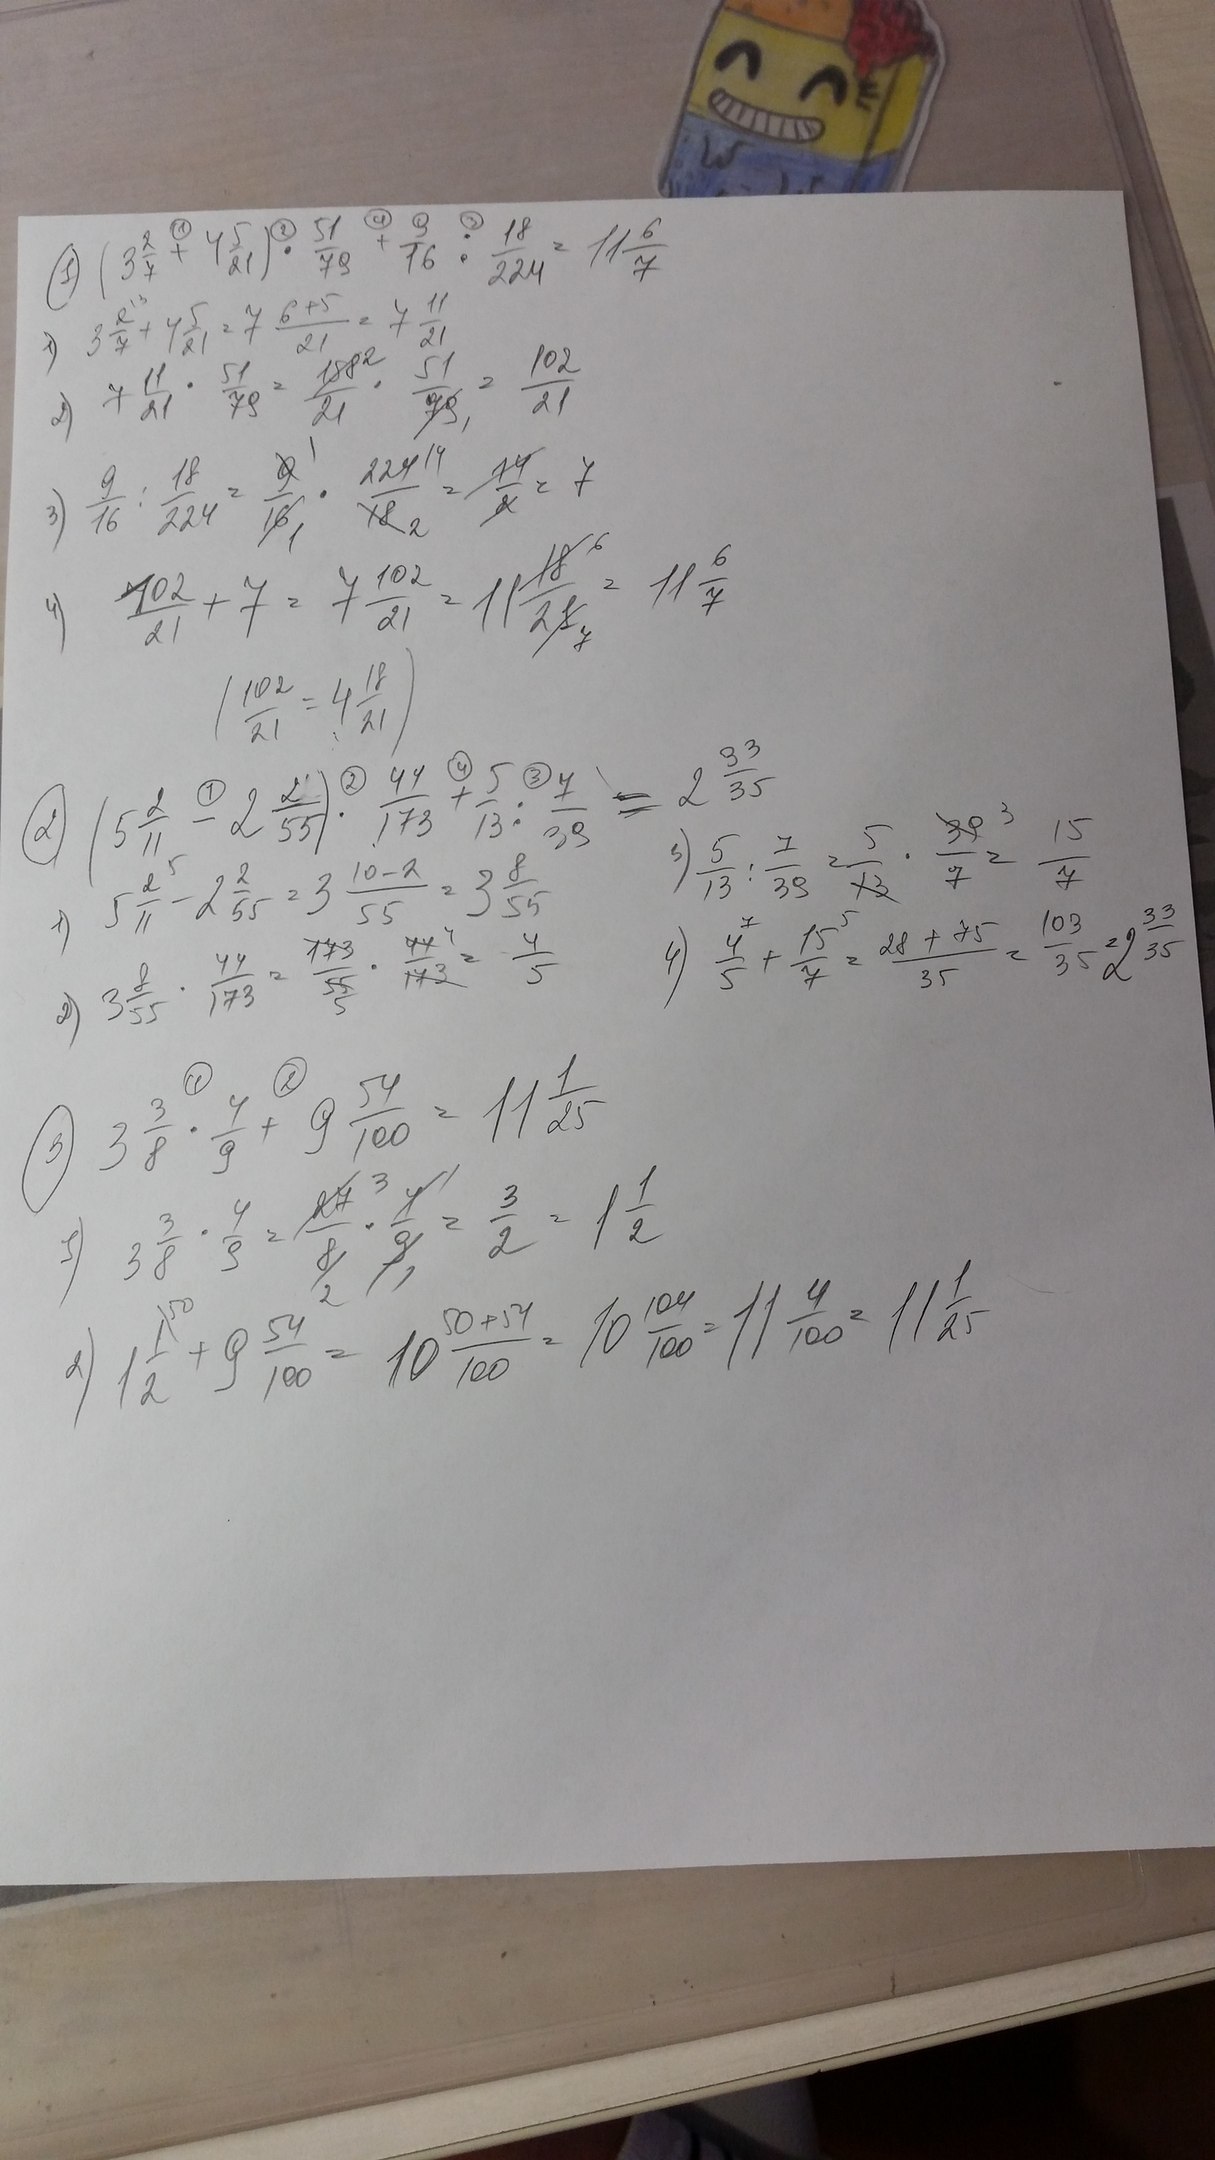 1) (3 2/7 + 4 5/21) · 51/79 + 9/16 : 18/224 = 11 6/7
1) 3 2/7 + 4 5/21 = 7 6+5/21 = 7 11/21
2) 7 11/21 · 51/79 = 158/21 · 51/79 = 102/21
3) 9/16 : 18/224 = 9/16 · 224/18 = 14/2 = 7
4) 102/21 + 7 = 7 102/21 = 11 18/21 = 11 6/7
(102/21 = 4 18/21)
2) (5 2/11 - 2 2/55) · 44/173 + 5/13 : 7/39 = 2 33/35
1) 5 2/11 - 2 2/55 = 3 10-2/55 = 3 8/55
2) 3 8/55 · 44/173 = 173/55 · 44/173 = 4/5
3) 5/13 : 7/39 = 5/13 · 39/7 = 15/7
4) 4/5 + 15/7 = 28+75/35 = 103/35 = 2 33/35
3) 3 3/8 · 4/9 + 9 54/100 = 11 1/25
1) 3 3/8 · 4/9 = 27/8 · 4/9 = 3/2 = 1 1/2
2) 1 1/2 + 9 54/100 = 10 50+54/100 = 10 104/100 = 11 4/100 = 11 1/25